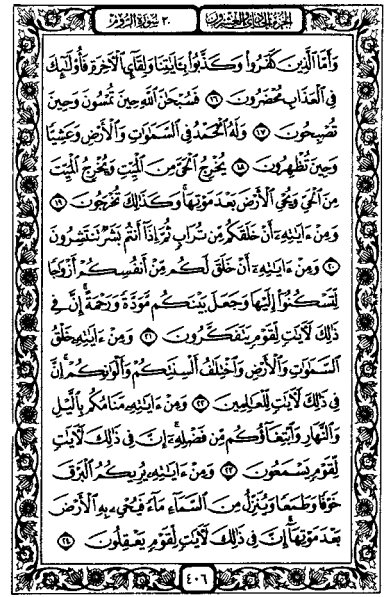 الجزء الحادي والعشرون
٣٠ سورة الروم
وَأَمَّا ٱلَّذِينَ كَفَرُوا۟ وَكَذَّبُوا۟ بِـَٔايَـٰتِنَا وَلِقَآئِ ٱلْـَٔاخِرَةِ فَأُو۟لَـٰٓئِكَ
فِى ٱلْعَذَابِ مُحْضَرُونَ ١٦ فَسُبْحَـٰنَ ٱللَّهِ حِينَ تُمْسُونَ وَحِينَ
تُصْبِحُونَ ١٧ وَلَهُ ٱلْحَمْدُ فِى ٱلسَّمَـٰوَٰتِ وَٱلْأَرْضِ وَعَشِيًّا
وَحِينَ تُظْهِرُونَ ١٨ يُخْرِجُ ٱلْحَىَّ مِنَ ٱلْمَيِّتِ وَيُخْرِجُ ٱلْمَيِّتَ
مِنَ ٱلْحَىِّ وَيُحْىِ ٱلْأَرْضَ بَعْدَ مَوْتِهَا ۚ وَكَذَٰلِكَ تُخْرَجُونَ ١٩
وَمِنْ ءَايَـٰتِهِۦٓ أَنْ خَلَقَكُم مِّن تُرَابٍ ثُمَّ إِذَآ أَنتُم بَشَرٌ تَنتَشِرُونَ
٢٠ وَمِنْ ءَايَـٰتِهِۦٓ أَنْ خَلَقَ لَكُم مِّنْ أَنفُسِكُمْ أَزْوَٰجًا
لِّتَسْكُنُوٓا۟ إِلَيْهَا وَجَعَلَ بَيْنَكُم مَّوَدَّةً وَرَحْمَةً ۚ إِنَّ فِى
ذَٰلِكَ لَـَٔايَـٰتٍ لِّقَوْمٍ يَتَفَكَّرُونَ ٢١ وَمِنْ ءَايَـٰتِهِۦ خَلْقُ
ٱلسَّمَـٰوَٰتِ وَٱلْأَرْضِ وَٱخْتِلَـٰفُ أَلْسِنَتِكُمْ وَأَلْوَٰنِكُمْ ۚ إِنَّ
فِى ذَٰلِكَ لَـَٔايَـٰتٍ لِّلْعَـٰلِمِينَ ٢٢ وَمِنْ ءَايَـٰتِهِۦ مَنَامُكُم بِٱلَّيْلِ
وَٱلنَّهَارِ وَٱبْتِغَآؤُكُم مِّن فَضْلِهِۦٓ ۚ إِنَّ فِى ذَٰلِكَ لَـَٔايَـٰتٍ
لِّقَوْمٍ يَسْمَعُونَ ٢٣ وَمِنْ ءَايَـٰتِهِۦ يُرِيكُمُ ٱلْبَرْقَ
خَوْفًا وَطَمَعًا وَيُنَزِّلُ مِنَ ٱلسَّمَآءِ مَآءً فَيُحْىِۦ بِهِ ٱلْأَرْضَ
بَعْدَ مَوْتِهَآ ۚ إِنَّ فِى ذَٰلِكَ لَـَٔايَـٰتٍ لِّقَوْمٍ يَعْقِلُونَ ٢٤
٤٠٦